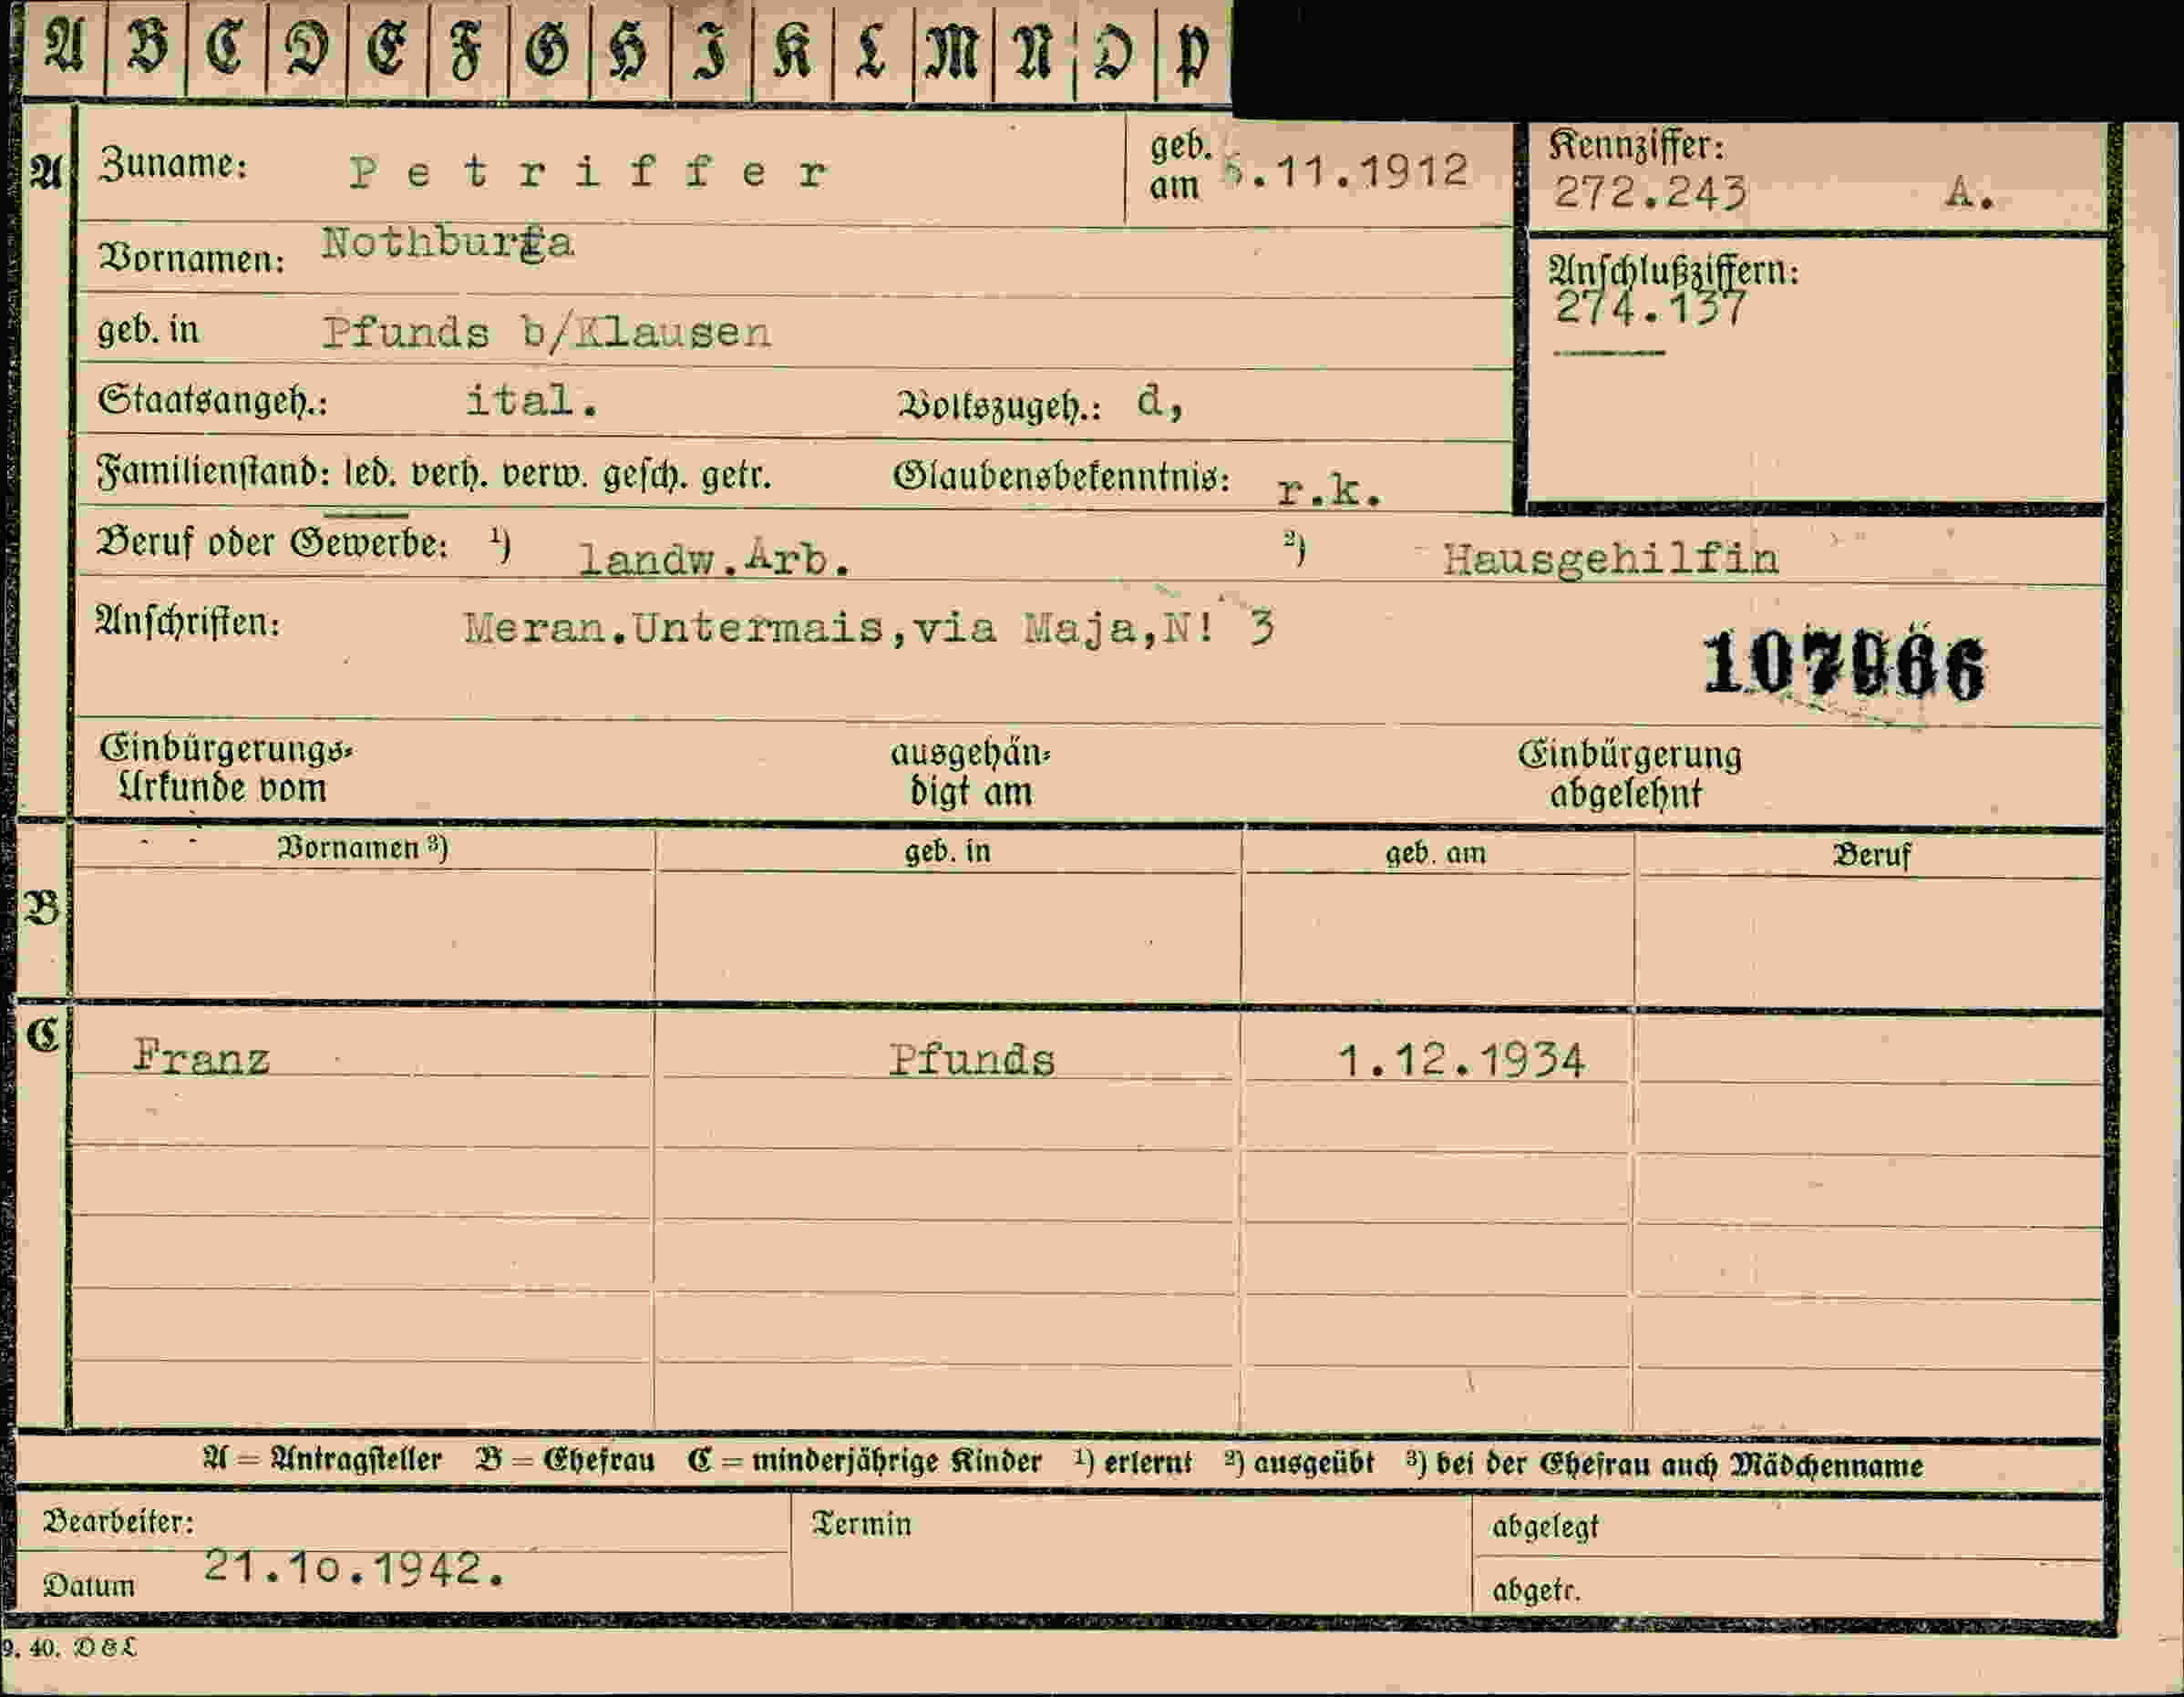 A B C D E F G H I K L M N O P
A Zuname: Petriffer geb. am 6.11.1912 Kennziffer: 272.243 A.
Vornamen: Nothburga
Anschlußziffern: 274.137
geb. in Pfunds b/Klausen
Staatsangeh.: ital. Volkszugeh.: d,
Familienstand: led. verh. verw. gesch. getr. Glaubensbekenntnis: r.k.
Beruf oder Gewerbe: ¹) landw.Arb. ²) Hausgehilfin
Anschriften: Meran.Untermais,via Maja,N! 3
107966
Einbürgerungs-Urkunde vom ausgehän-digt am Einbürgerung abgelehnt
Vornamen ³) geb. in geb. am Beruf
B
C Franz Pfunds 1.12.1934
A = Antragsteller B = Ehefrau C = minderjährige Kinder ¹) erlernt ²) ausgeübt ³) bei der Ehefrau auch Mädchenname
Bearbeiter: Termin abgelegt
Datum 21.10.1942. abgetr.
9. 40. D&L